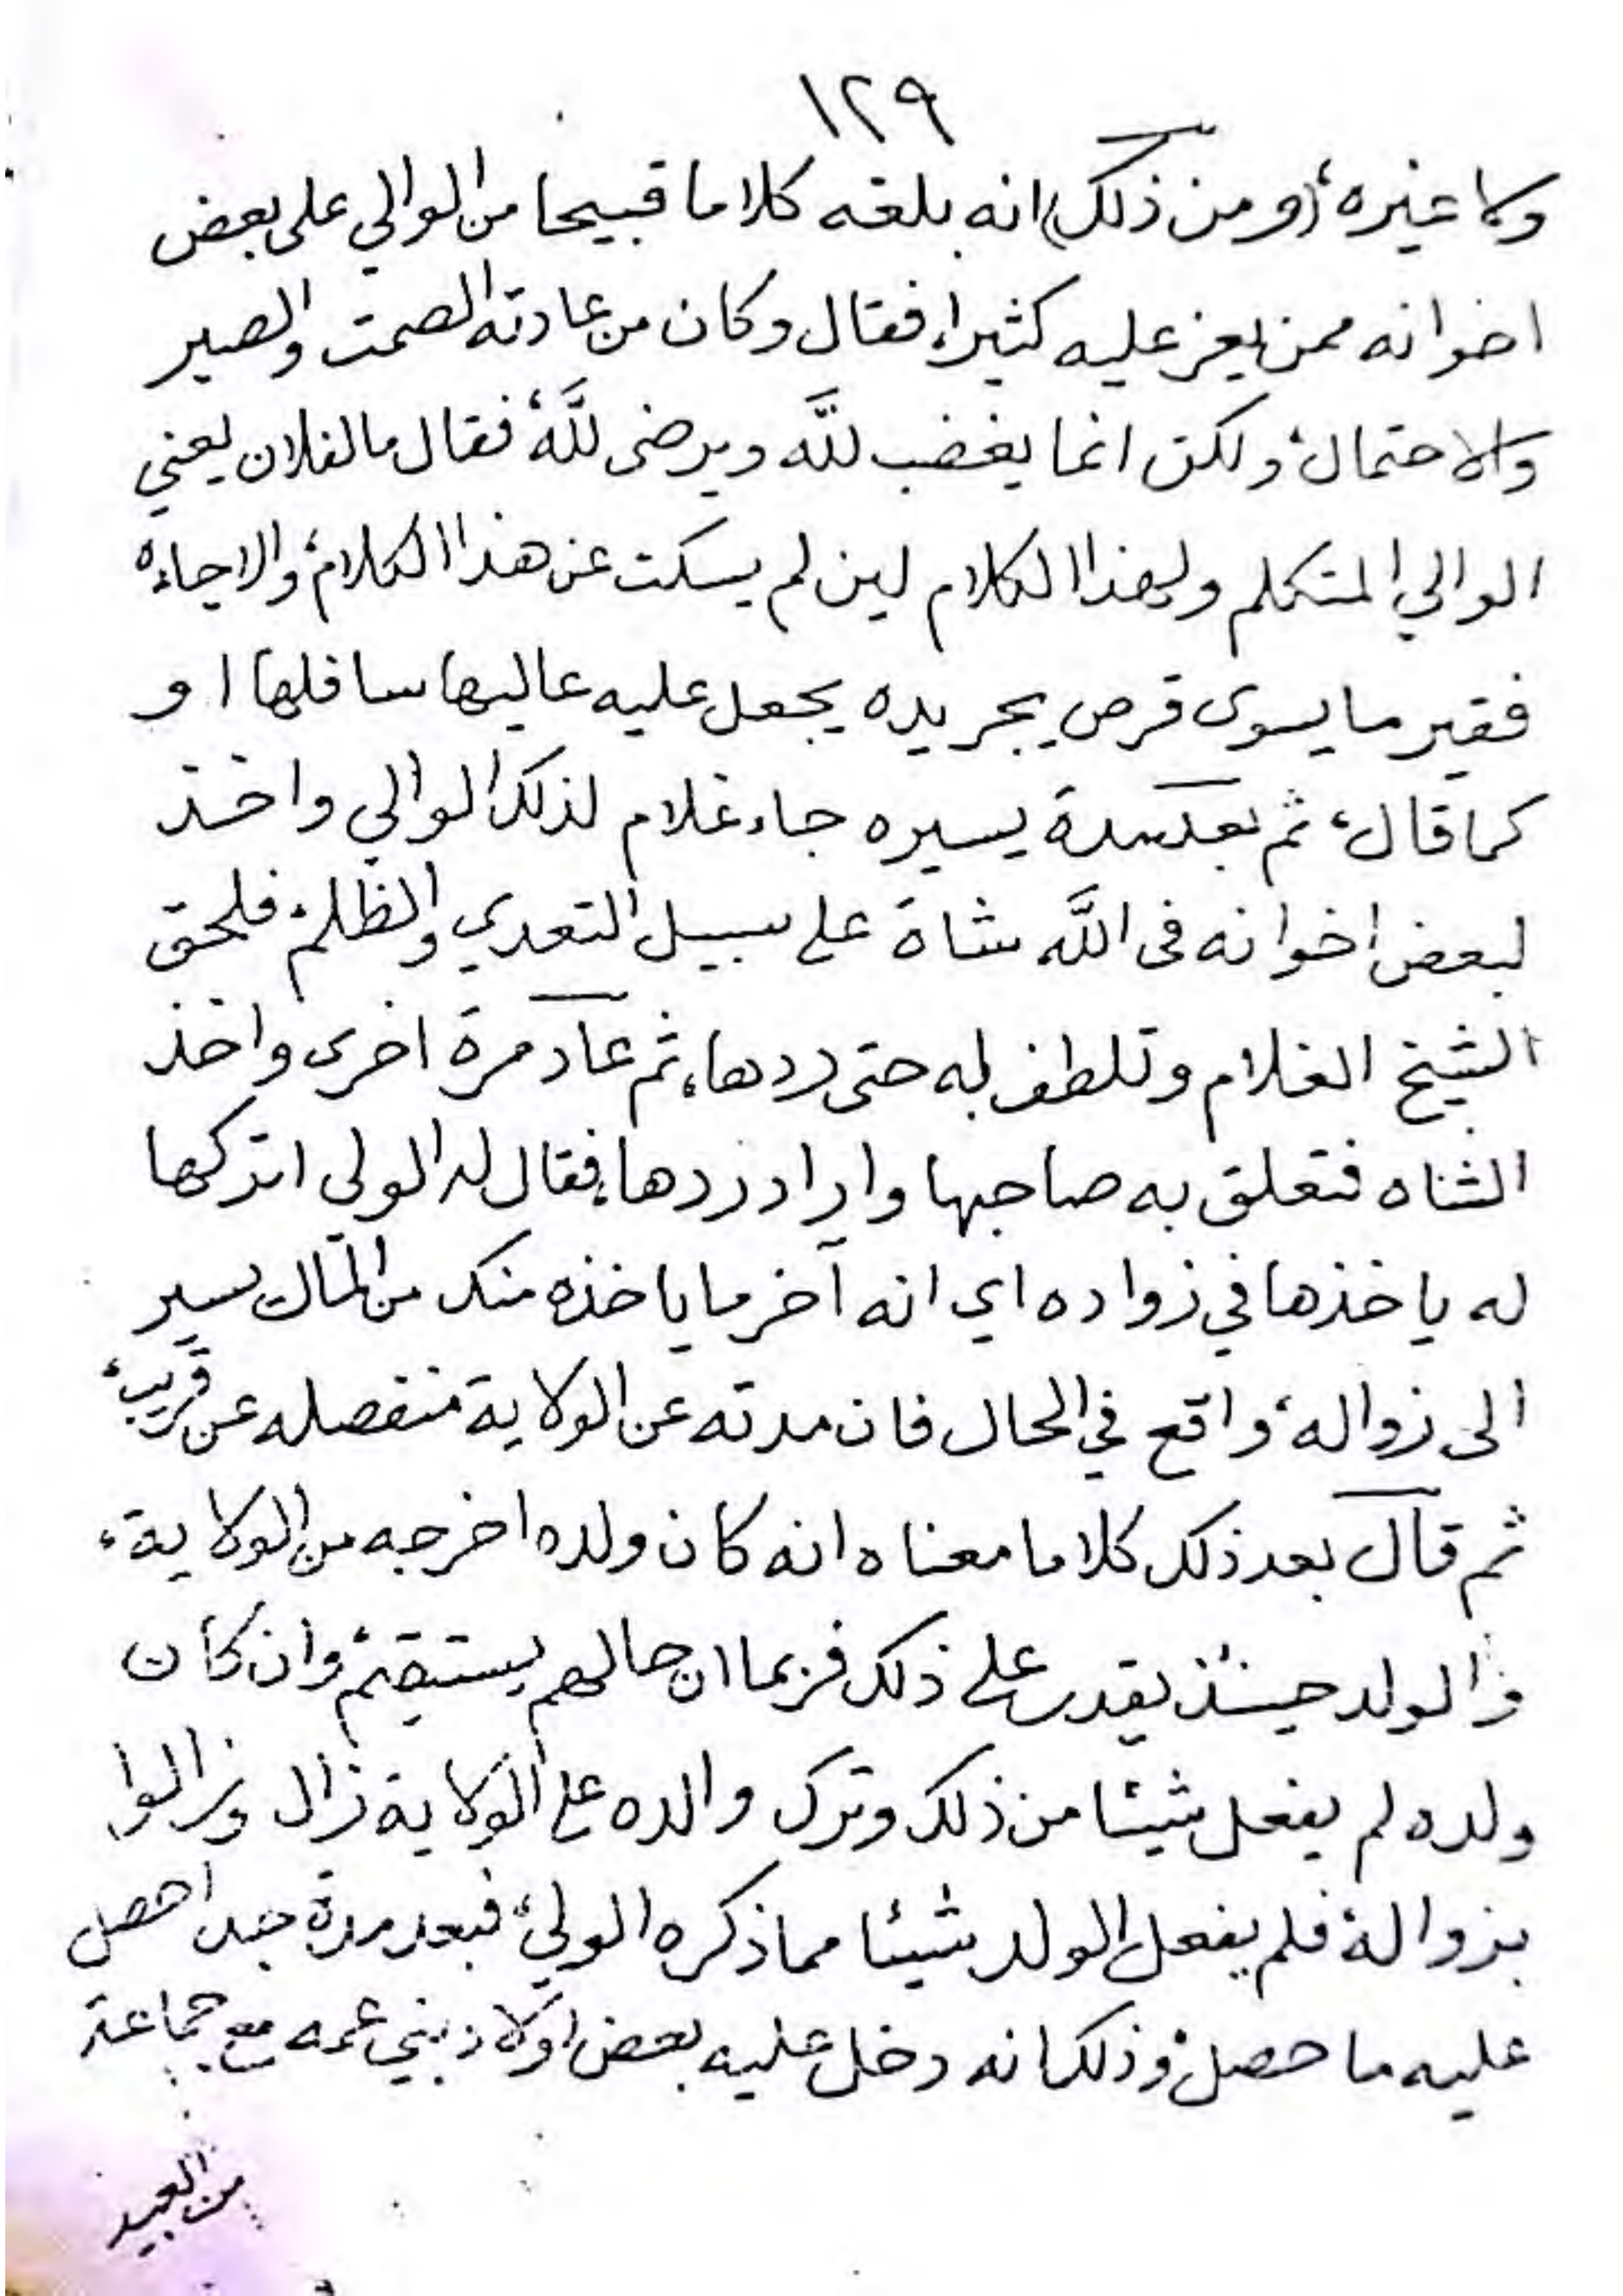 ١٢٩
ولا غيره، (ومن ذلك) انه بلغه كلاما قبيحا من الوالي على بعض
اخوانه ممن يعز عليه كثيرا، فقال وكان من عادته الصمت والصبر
والاحتمال، ولكن انما يغضب للَّه ويرضى للَّه، فقال ما لفلان يعني
الوالي المتكلم ولهذا الكلام لين لم يسكت عن هذا الكلام، والا جاءه
فقير ما يسوى قرص بجريده يجعل عليه عاليها سافلها او
كما قال، ثم بعد مدة يسيره جاء غلام لذلك الوالي واخذ
لبعض اخوانه فى اللَّه شاة على سبيل التعدي والظلم، فلحق
الشيخ الغلام وتلطف له حتى ردها، ثم عاد مرة اخرى واخذ
الشاه فتعلق به صاحبها واراد ردها، فقال له الولى اتركها
له ياخذها في زواده اي انه آخر ما ياخذه منك من المال يسير
الى زواله، واقع في الحال فان مدته عن الولاية منفصله عن قريب،
ثم قال بعد ذلك كلاما معناه انه كان ولده اخرجه من الولاية،
والولد حينئذ يقدر على ذلك فربما ان حالهم يستقيم، وان كان
ولده لم يفعل شيئا من ذلك وترك والده على الولاية زال وزالوا
بزواله، فلم يفعل الولد شيئا مما ذكره الولي، فبعد مدة جدا حصل
عليه ما حصل، وذلك انه دخل عليه بعض اولاد بني عمه مع جماعة
من العبيد